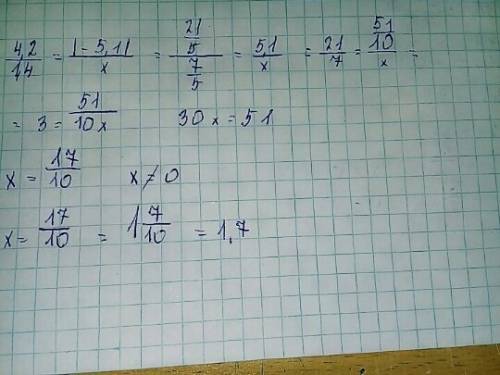 4,2/14 = |-5,1|/x = (21/5)/(7/5) = 5,1/x = 21/7 = (51/10)/x =
= 3 = 51/10x    30x = 51
x = 17/10    x ≠ 0
x = 17/10 = 1 7/10 = 1,7